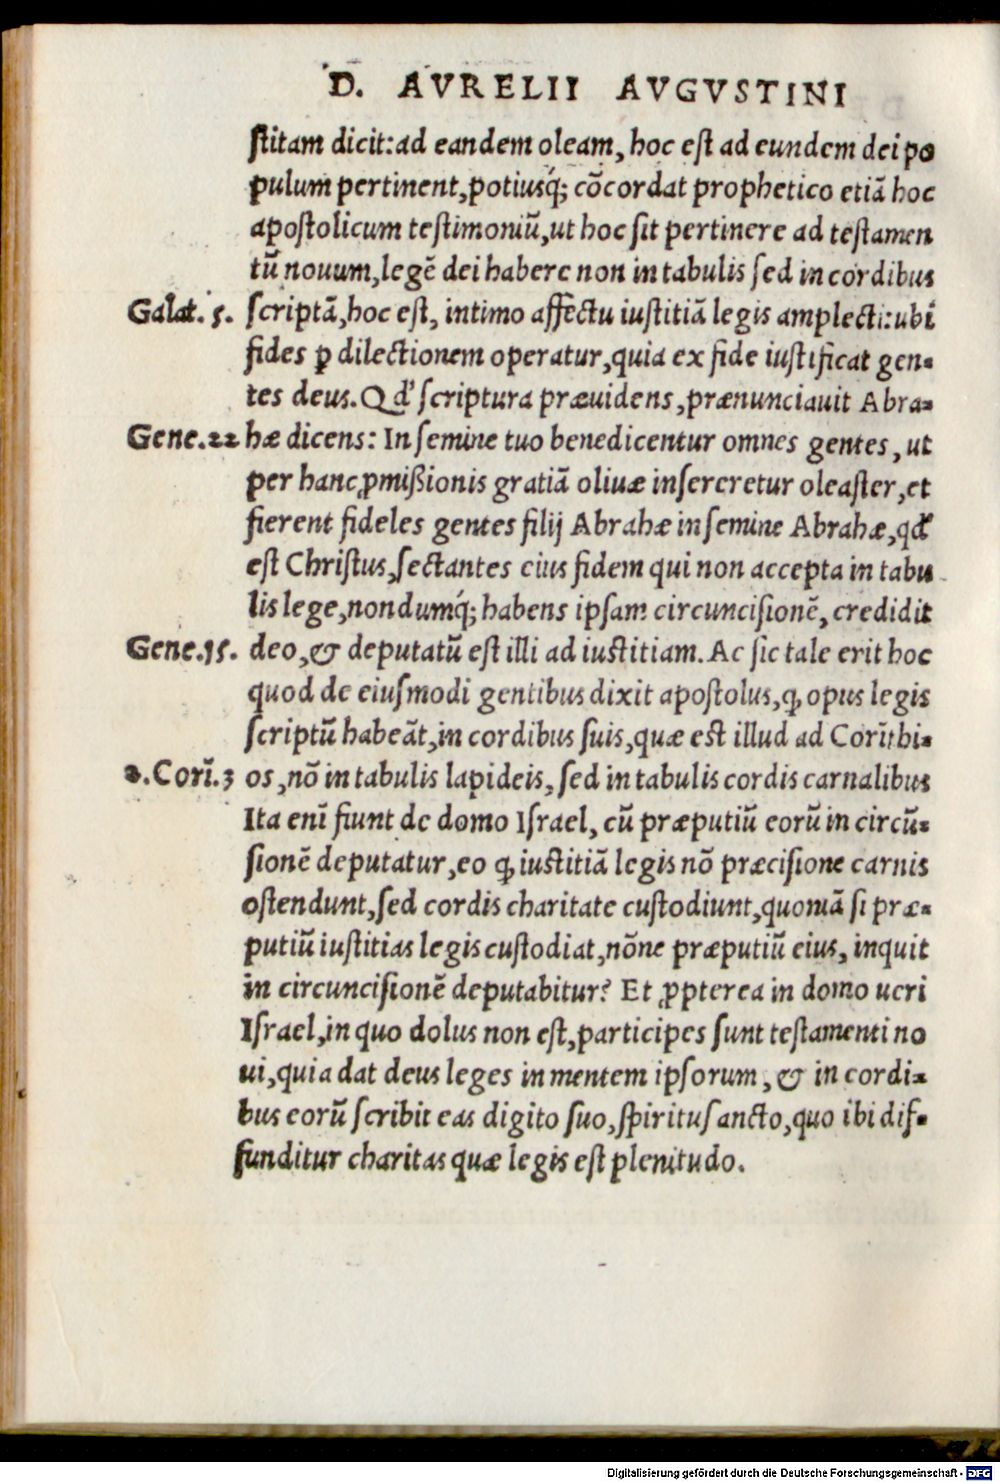 D. AVRELII AVGVSTINI
ſtitam dicit: ad eandem oleam, hoc eſt ad eundem dei po
pulum pertinent, potiusq́; cōcordat prophetico etiā hoc
apoſtolicum teſtimoniū, ut hoc ſit pertinere ad teſtamen
tū nouum, legē dei habere non in tabulis ſed in cordibus
Galat. 5. ſcriptā, hoc eſt, intimo affectu iuſtitiā legis amplecti: ubi
fides ꝑ dilectionem operatur, quia ex fide iuſtificat gen-
tes deus. Qd' ſcriptura præuidens, prænunciauit Abra-
Gene.22 hæ dicens: In ſemine tuo benedicentur omnes gentes, ut
per hanc ꝓmiſsionis gratiā oliuæ inſereretur oleaſter, et
fierent fideles gentes filij Abrahæ in ſemine Abrahæ, qd'
eſt Chriſtus, ſectantes eius fidem qui non accepta in tabu
lis lege, nondumq́; habens ipſam circunciſionē, credidit
Gene.15. deo, & deputatū eſt illi ad iuſtitiam. Ac ſic tale erit hoc
quod de eiuſmodi gentibus dixit apoſtolus, ꝙ opus legis
ſcriptū habeāt, in cordibus ſuis, quæ eſt illud ad Corīthi-
2.Corī.3 os, nō in tabulis lapideis, ſed in tabulis cordis carnalibus
Ita enī fiunt de domo Iſrael, cū præputiū eorū in circū-
ſionē deputatur, eo ꝙ iuſtitiā legis nō præciſione carnis
oſtendunt, ſed cordis charitate cuſtodiunt, quoniā ſi præ-
putiū iuſtitias legis cuſtodiat, nōne præputiū eius, inquit
in circunciſionē deputabitur? Et ꝓpterea in domo ueri
Iſrael, in quo dolus non eſt, participes ſunt teſtamenti no
ui, quia dat deus leges in mentem ipſorum, & in cordi-
bus eorū ſcribit eas digito ſuo, ſpiritu ſancto, quo ibi dif-
funditur charitas quæ legis eſt plenitudo.
Digitalisierung gefördert durch die Deutsche Forschungsgemeinschaft - DFG